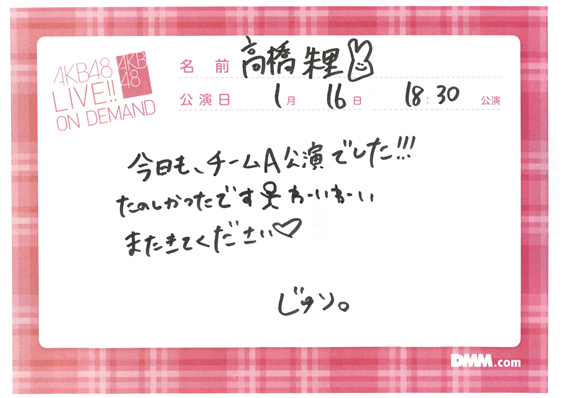 AKB48
LIVE!!
ON DEMAND
AKB
48
名前 高橋朱里
公演日 1月 16日 18:30 公演
今日も、チームA公演でした!!!
たのしかったです わーいわーい
またきてください♡
じゅり。
DMM.com